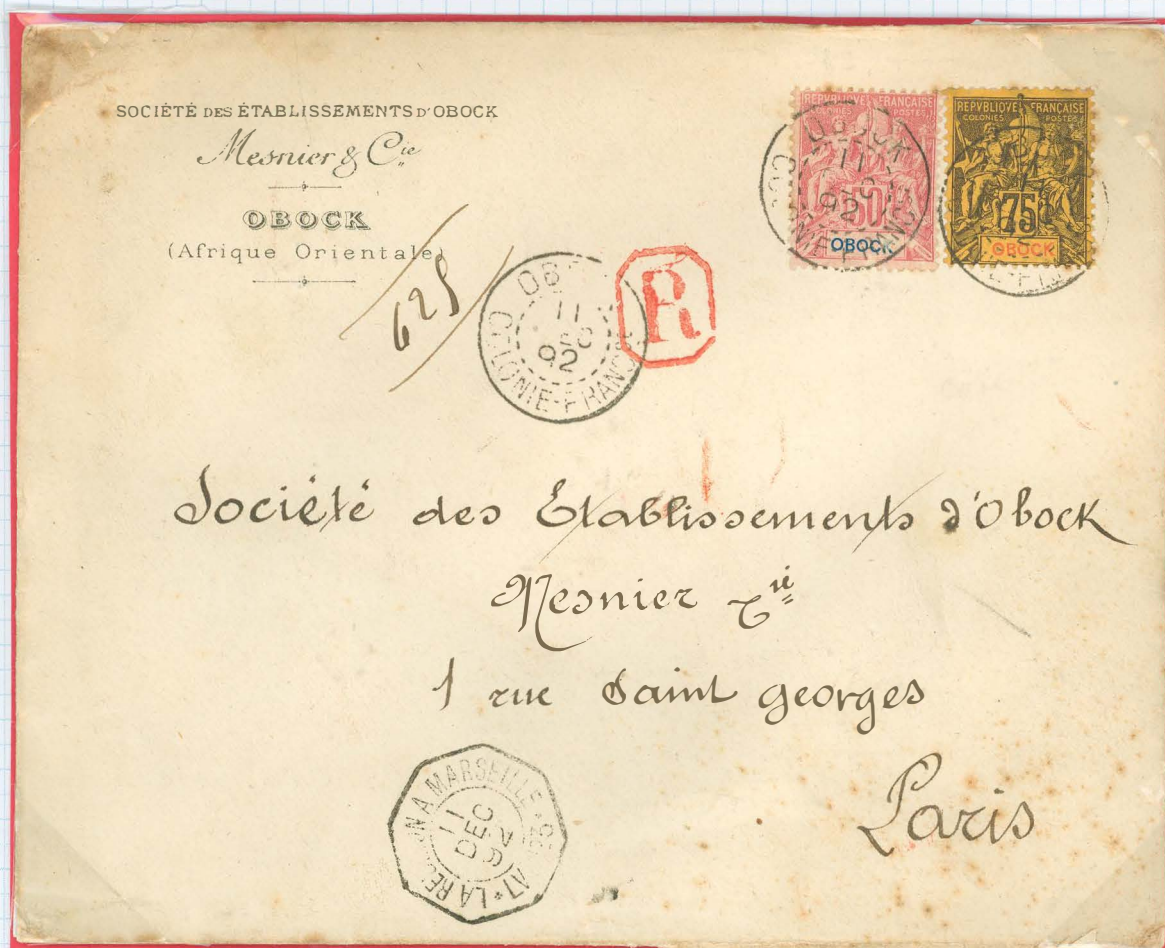 SOCIÉTÉ DES ÉTABLISSEMENTS D'OBOCK
Mesnier & Cie
OBOCK
(Afrique Orientale)
REPVBLIQVE FRANÇAISE
COLONIES POSTES
50
OBOCK
REPVBLIQVE FRANÇAISE
COLONIES POSTES
75
OBOCK
OBOCK
11
92
628
11
92
COLONIE-FRANÇ
R
Société des Etablissements d'Obock
Mesnier Cie
1 rue Saint georges
Paris
LA RÉUNION A MARSEILLE
11
DEC
92